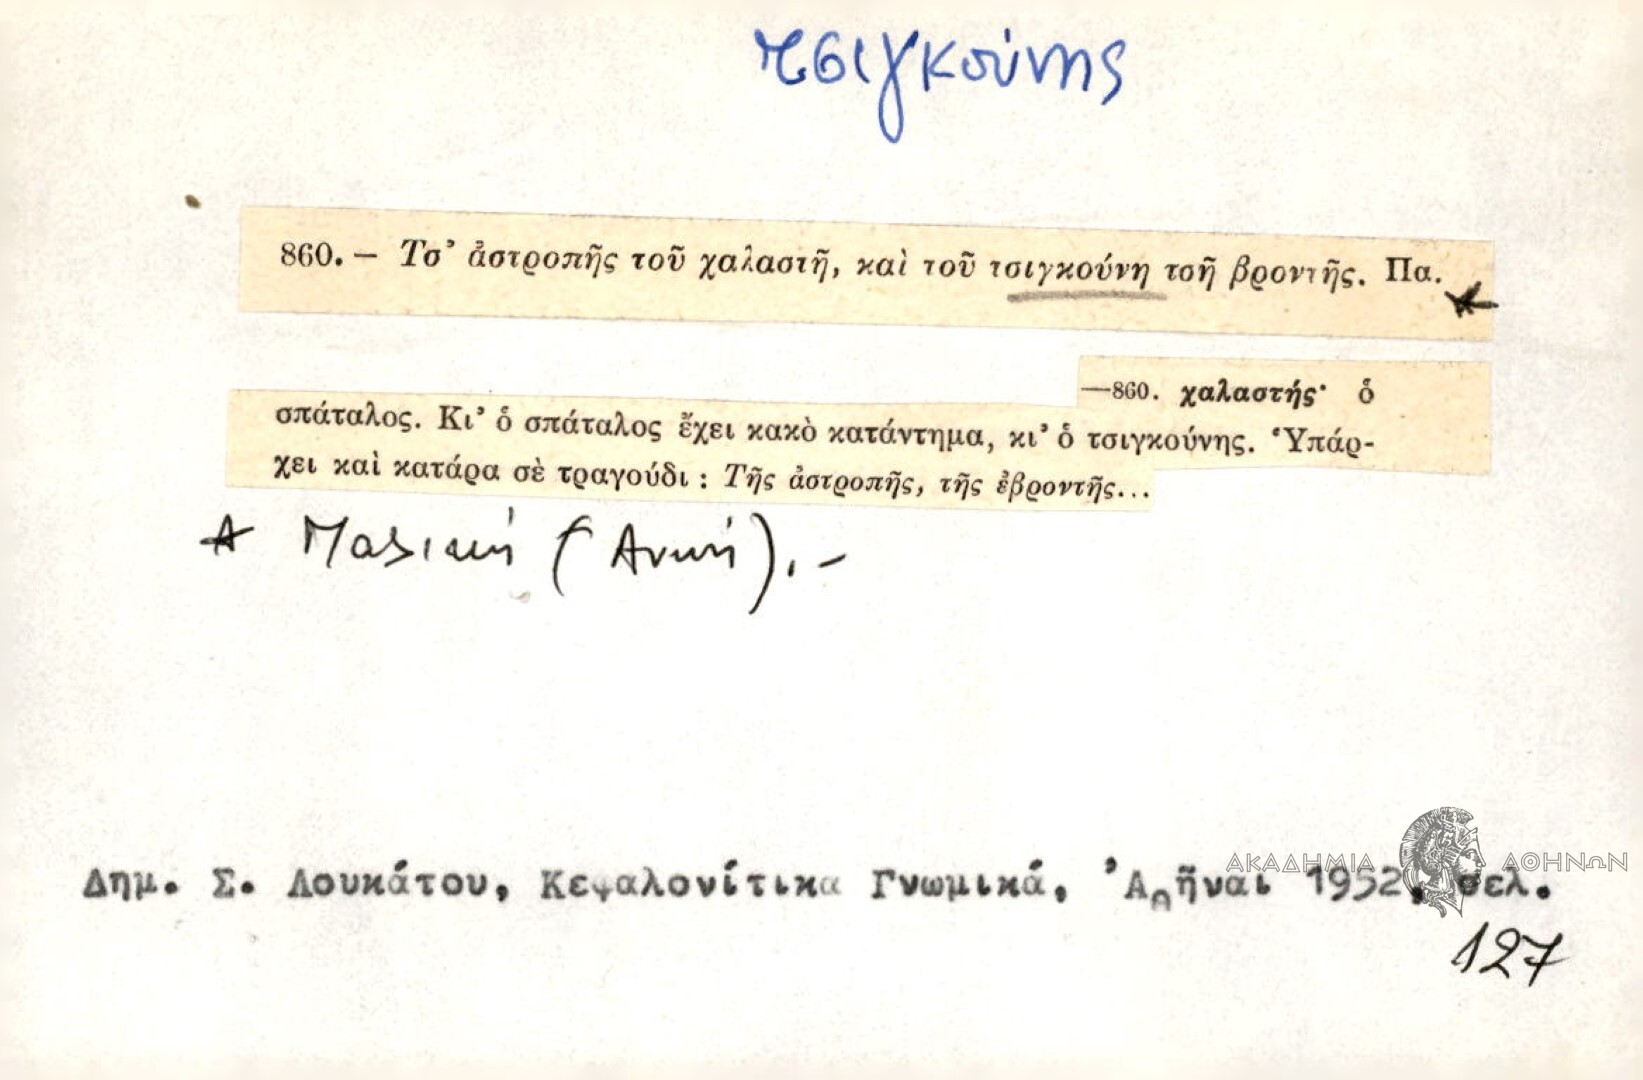 τσιγκούνης
860. — Τσ' ἀστροπῆς τοῦ χαλαστῆ, καὶ τοῦ τσιγκούνη τσῆ βροντῆς. Πα.
—860. χαλαστής· ὁ
σπάταλος. Κι' ὁ σπάταλος ἔχει κακὸ κατάντημα, κι' ὁ τσιγκούνης. Ὑπάρ-
χει καὶ κατάρα σὲ τραγούδι : Τῆς ἀστροπῆς, τῆς ἐβροντῆς...
Παλική (Ανωή).-
ΑΚΑΔΗΜΙΑ ΑΘΗΝΩΝ
Δημ. Σ. Λουκάτου, Κεφαλονίτικα Γνωμικά, Ἀθῆναι 1952, σελ.
127